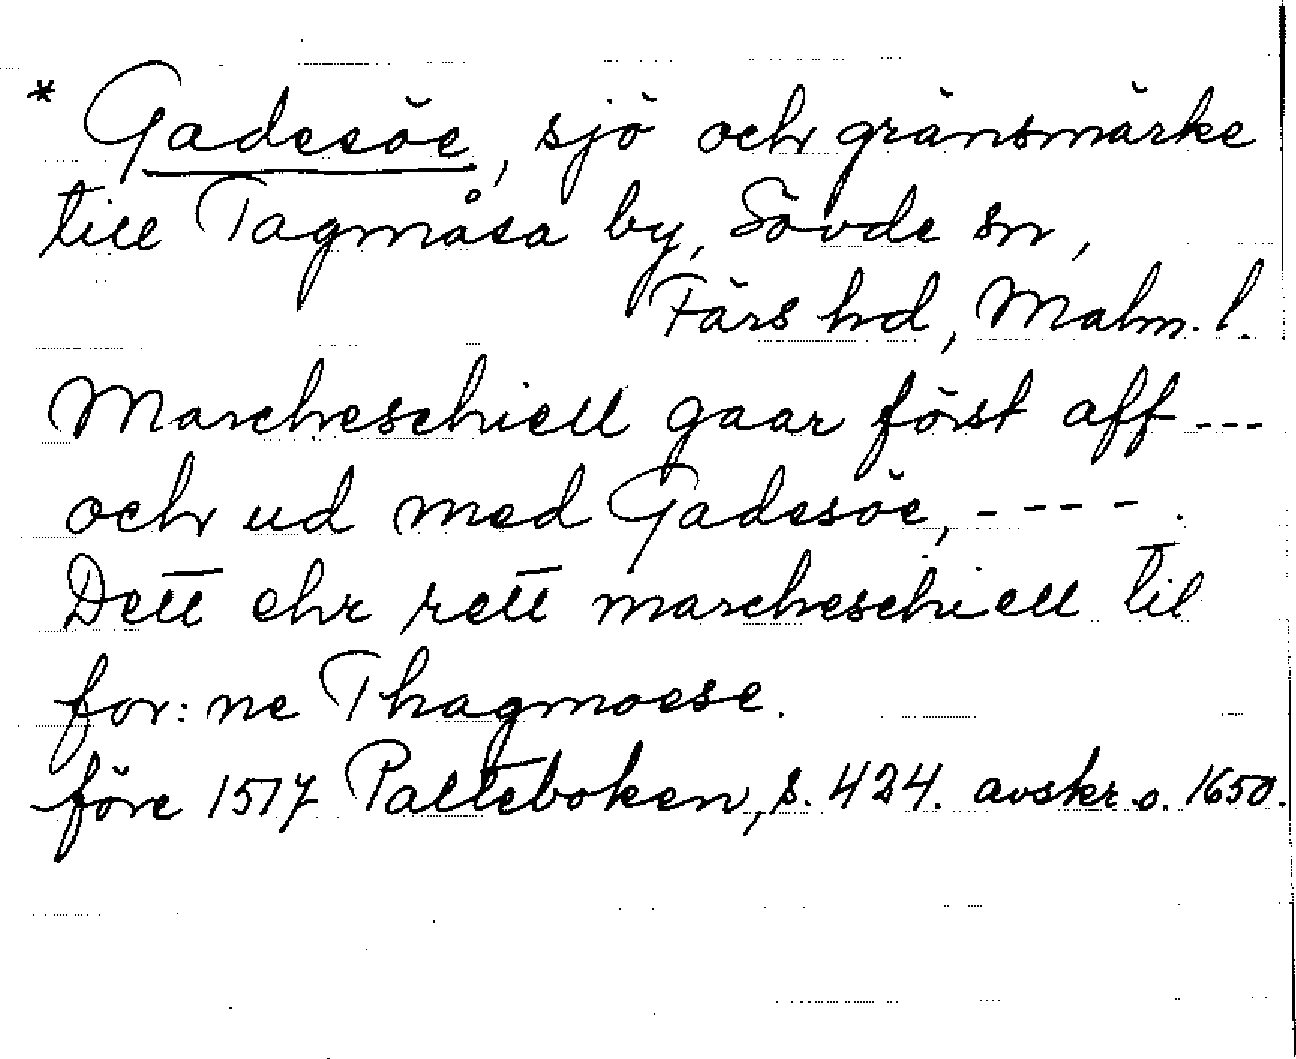 * Gadesöe, sjö och gränsmärke
till Tagmåsa by, Sövde sn,
Färs hd, Malm. l.
Marcheschiell gaar först aff ---
och ud med Gadesöe, ----.
Dett ehr rett marcheschiell til
for: ne Thagmoese.
före 1517 Palteboken, s. 424. avskr. o. 1650.